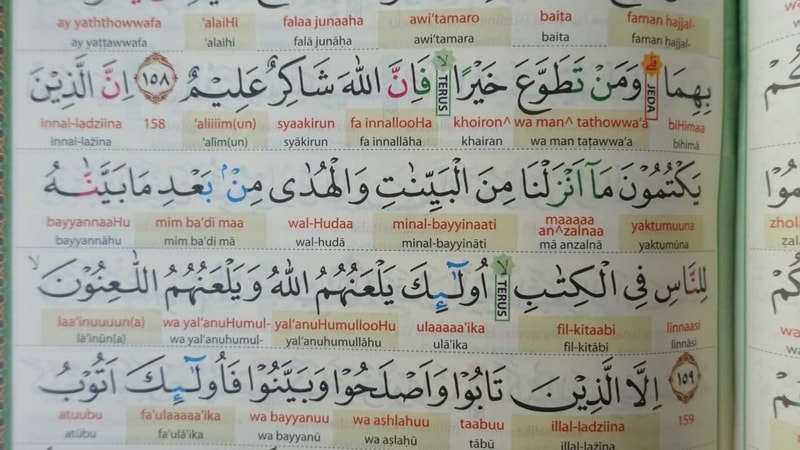 faman hajjal- baita awi'tamaro falaa junaaha 'alaiHi ay yaththowwafa
faman ḥajjal- baita awi'tamara falā junāḥa 'alaihi ay yaṭṭawwafa
بِهِمَا ۗ وَمَنْ تَطَوَّعَ خَيْرًا ۙ فَاِنَّ اللّٰهَ شَاكِرٌ عَلِيْمٌ ١٥٨ اِنَّ الَّذِيْنَ
JEDA TERUS
biHimaa wa man^ tathowwa'a khoiron^ fa innallooHa syaakirun 'aliiiim(un) 158 innal-ladziina
bihimā wa man taṭawwa'a khairan fa innallāha syākirun 'alīm(un) innal-lażīna
يَكْتُمُوْنَ مَآ اَنْزَلْنَا مِنَ الْبَيِّنٰتِ وَالْهُدٰى مِنْۢ بَعْدِ مَا بَيَّنّٰهُ
yaktumuuna maaaaa an^zalnaa minal-bayyinaati wal-Hudaa mim ba'di maa bayyannaaHu
yaktumūna mā anzalnā minal-bayyināti wal-hudā mim ba'di mā bayyannāhu
لِلنَّاسِ فِى الْكِتٰبِ ۙ اُولٰۤىِٕكَ يَلْعَنُهُمُ اللّٰهُ وَيَلْعَنُهُمُ اللّٰعِنُوْنَ ۙ
TERUS
linnaasi fil-kitaabi ulaaaaa'ika yal'anuHumullooHu wa yal'anuHumul- laa'inuuuun(a)
linnāsi fil-kitābi ulā'ika yal'anuhumullāhu wa yal'anuhumul- lā'inūn(a)
١٥٩ اِلَّا الَّذِيْنَ تَابُوْا وَاَصْلَحُوْا وَبَيَّنُوْا فَاُولٰۤىِٕكَ اَتُوْبُ
159 illal-ladziina taabuu wa ashlahuu wa bayyanuu fa'ulaaaaa'ika atuubu
illal-lażīna tābū wa aṣlaḥū wa bayyanū fa'ulā'ika atūbu